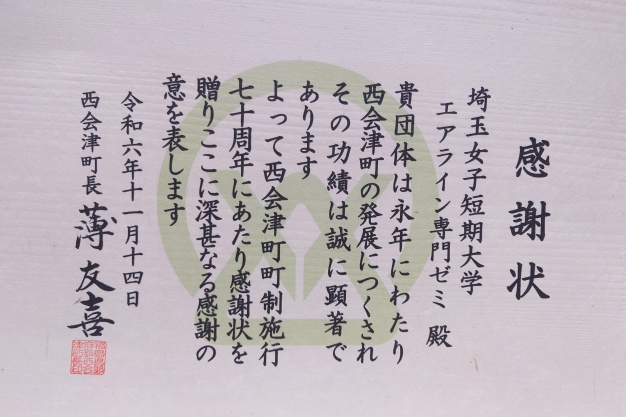 感謝状
埼玉女子短期大学
エアライン専門ゼミ 殿
貴団体は永年にわたり
西会津町の発展につくされ
その功績は誠に顕著で
あります
よって西会津町町制施行
七十周年にあたり感謝状を
贈りここに深甚なる感謝の
意を表します
令和六年十一月十四日
西会津町長 薄友喜